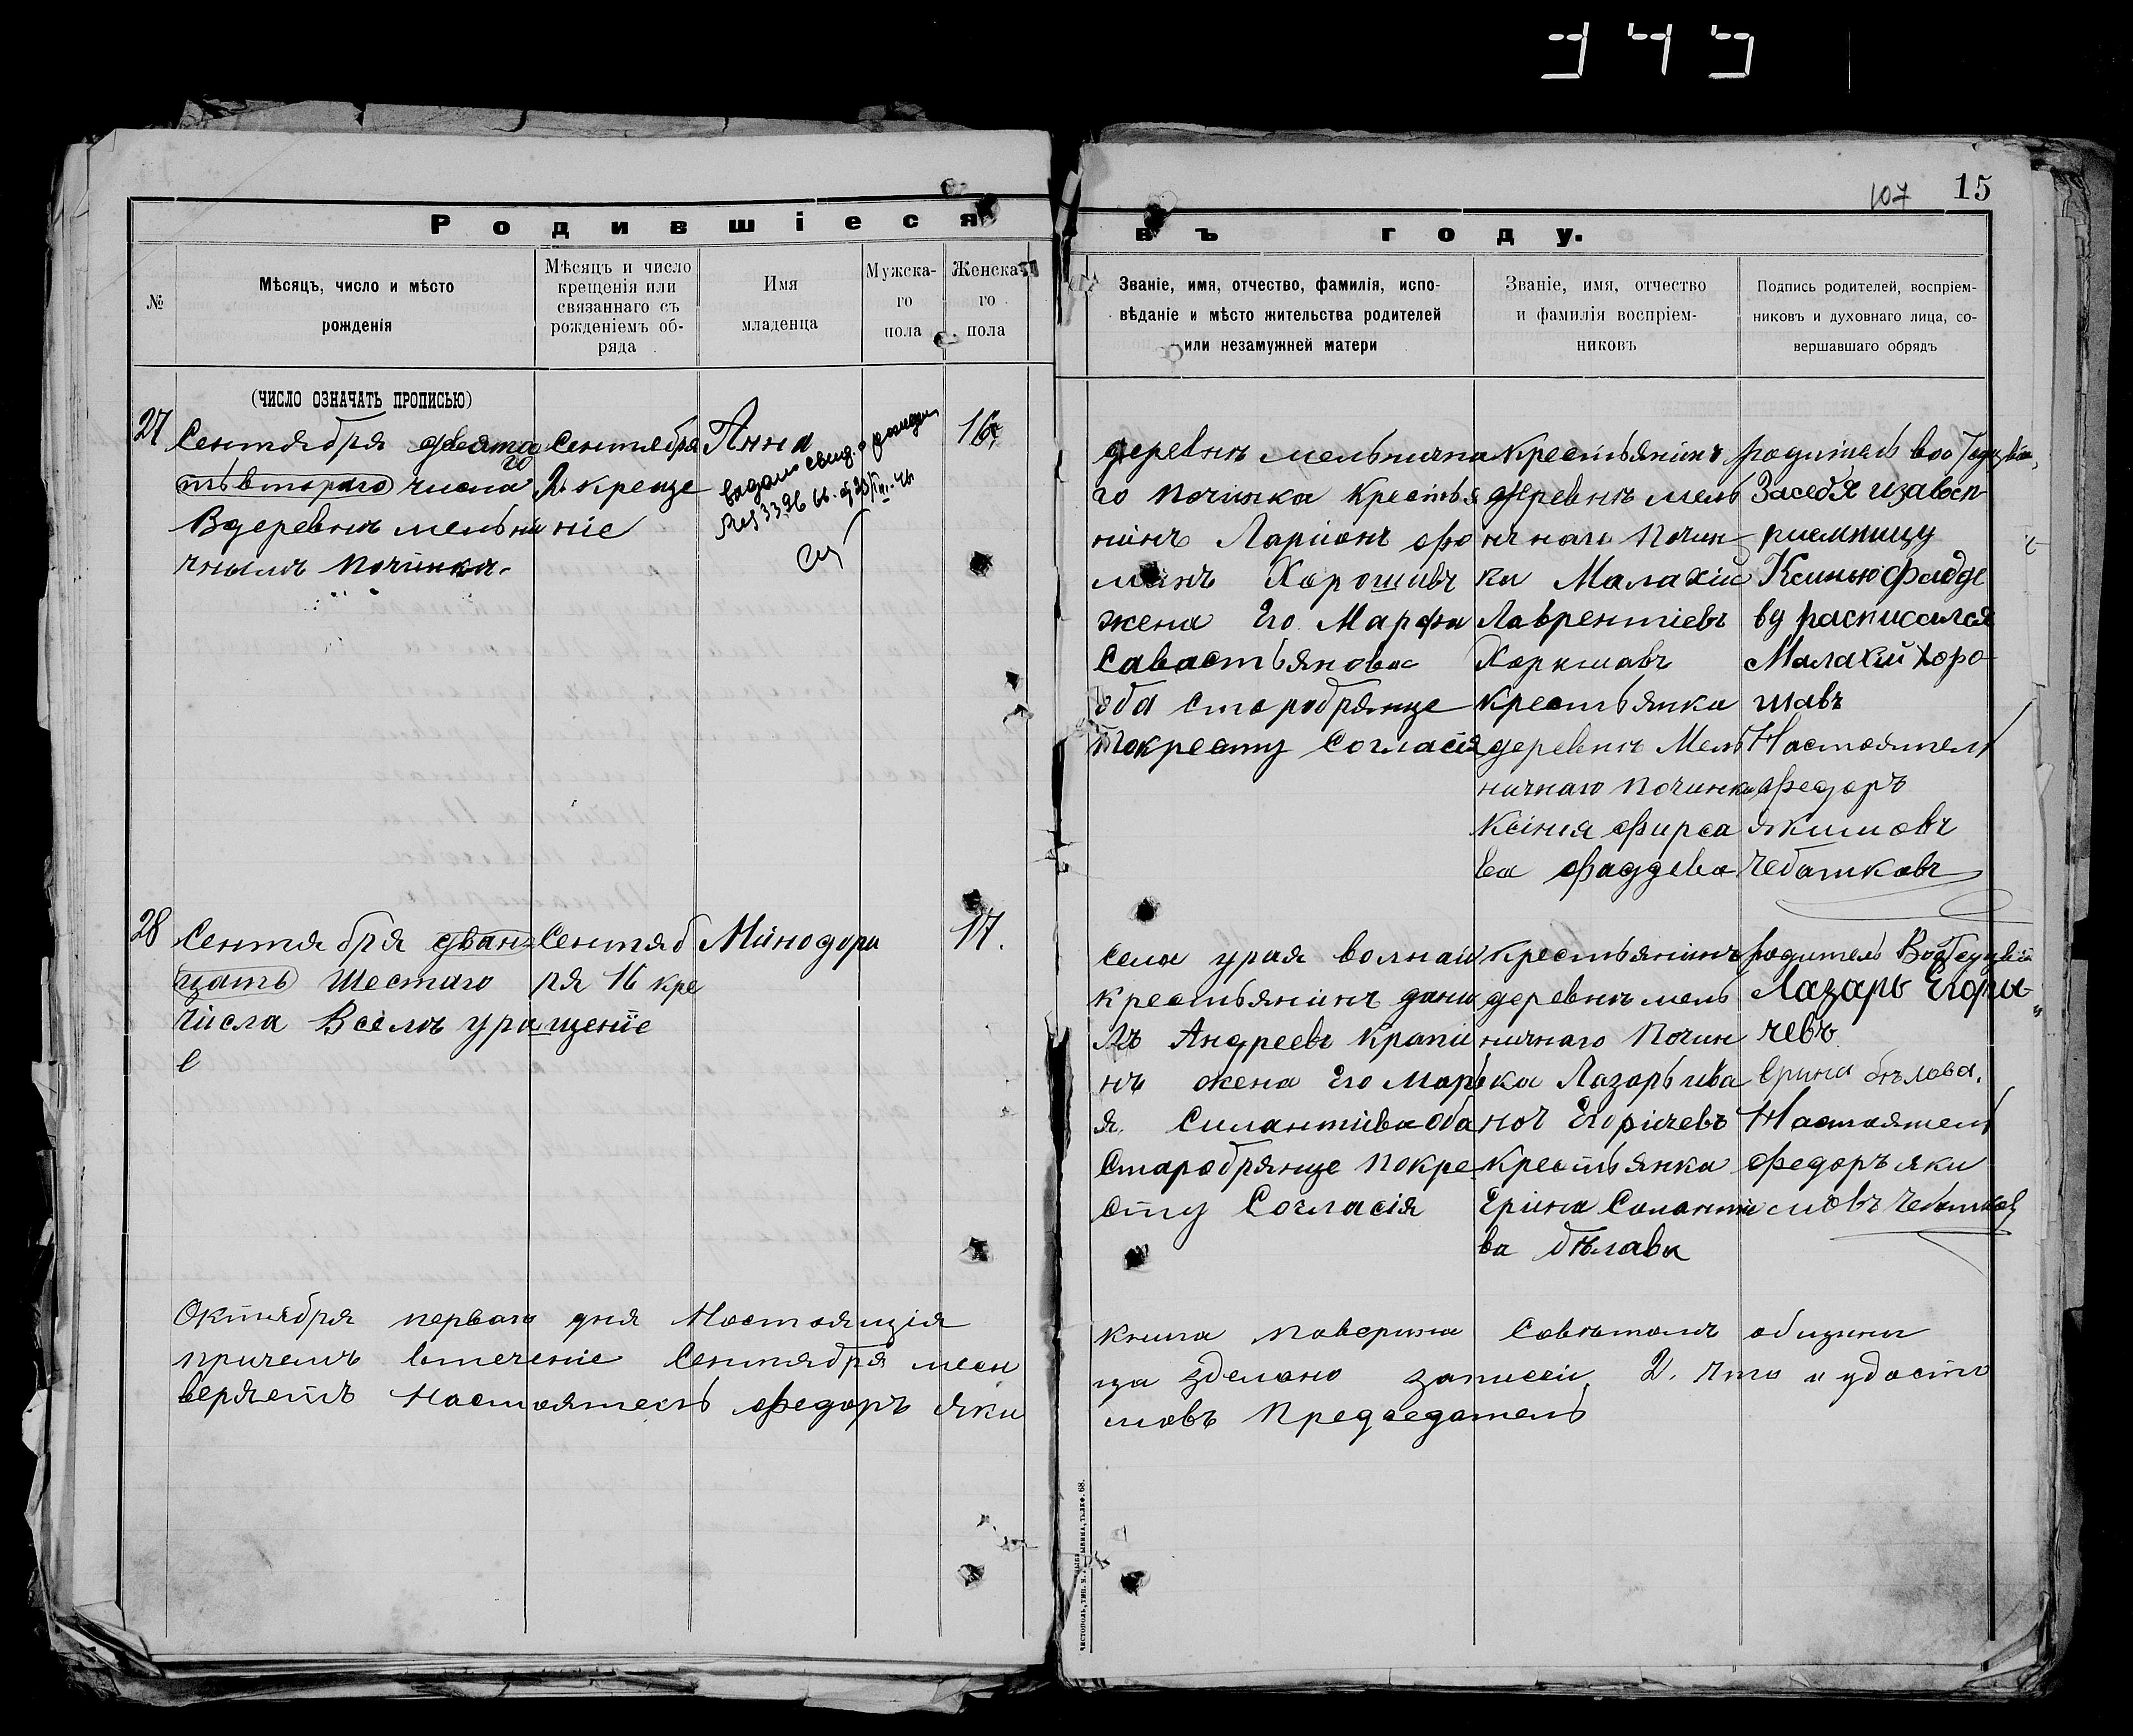 943
107 15
Родившіеся
въ і году.
№
Мѣсяцъ, число и мѣсто
рожденія
Мѣсяцъ и число
крещенія или
связаннаго съ
рожденіемъ об-
ряда
Имя
младенца
Мужска-
го
пола
Женска-
го
пола
Званіе, имя, отчество, фамилія, испо-
вѣданіе и мѣсто жительства родителей
или незамужней матери
Званіе, имя, отчество
и фамилія воспріем-
никовъ
Подпись родителей, воспріем-
никовъ и духовнаго лица, со-
вершавшаго обрядъ
(ЧИСЛО ОЗНАЧАТЬ ПРОПИСЬЮ)
27
Сентября
числа
Вдеревнѣ мельни
чнымъ Починка.
Сентября
2. креще
ніе
Анна
выдано свид. о рожден
16.
деревнѣ мельнична
го Починка Крестья
нинъ Ларіонъ Фо
минъ Хорошивъ
жена Его Марфа
Савастьянова
оба старобрянце
Покресту Согласія
Крестьянинъ
деревнѣ мель
ничнаго Почин
ка Малахій
Лаврентіевъ
Хоршавъ
крестьянка
деревнѣ Мель
ничнаго Починка
Ксінія Фирса
ва Фаддева
родитель
Заседя изавосп-
риемницу
Ксинью Фадде
ву расписался
Малахій Хоро
шавъ
Настоятель
Федоръ
Якимовъ
Чебатковъ
28
Сентября двань
цать Шестаго
числа Вселѣ ура
е
Сентяб
ря 16 кре
щеніе
Минодора
17.
села урая волнай
крестьянинъ дани
лъ Андреевъ Крапи
нъ жена Его Марь
я. Силантива Оба
Старобрянце Покре
сту Согласія
крестьянинъ
деревнѣ мель
ничнаго Почин
ка Лазарь ива
ноч Егоричевъ
крестьянка
Ерина Силанти
ва бѣлава
родитель
Лазарь Егори-
чевъ
Ерина бѣлова.
Настоятель
Федоръ яки
мовъ Чебатков
Октября перваго дня Настоящія
книга поверина Совѣтомъ общины
причемъ втеченіе Сентября меся
ца зделано записей 2. что и удосто
веряетъ Настоятель Федоръ Яки
мовъ Председатель